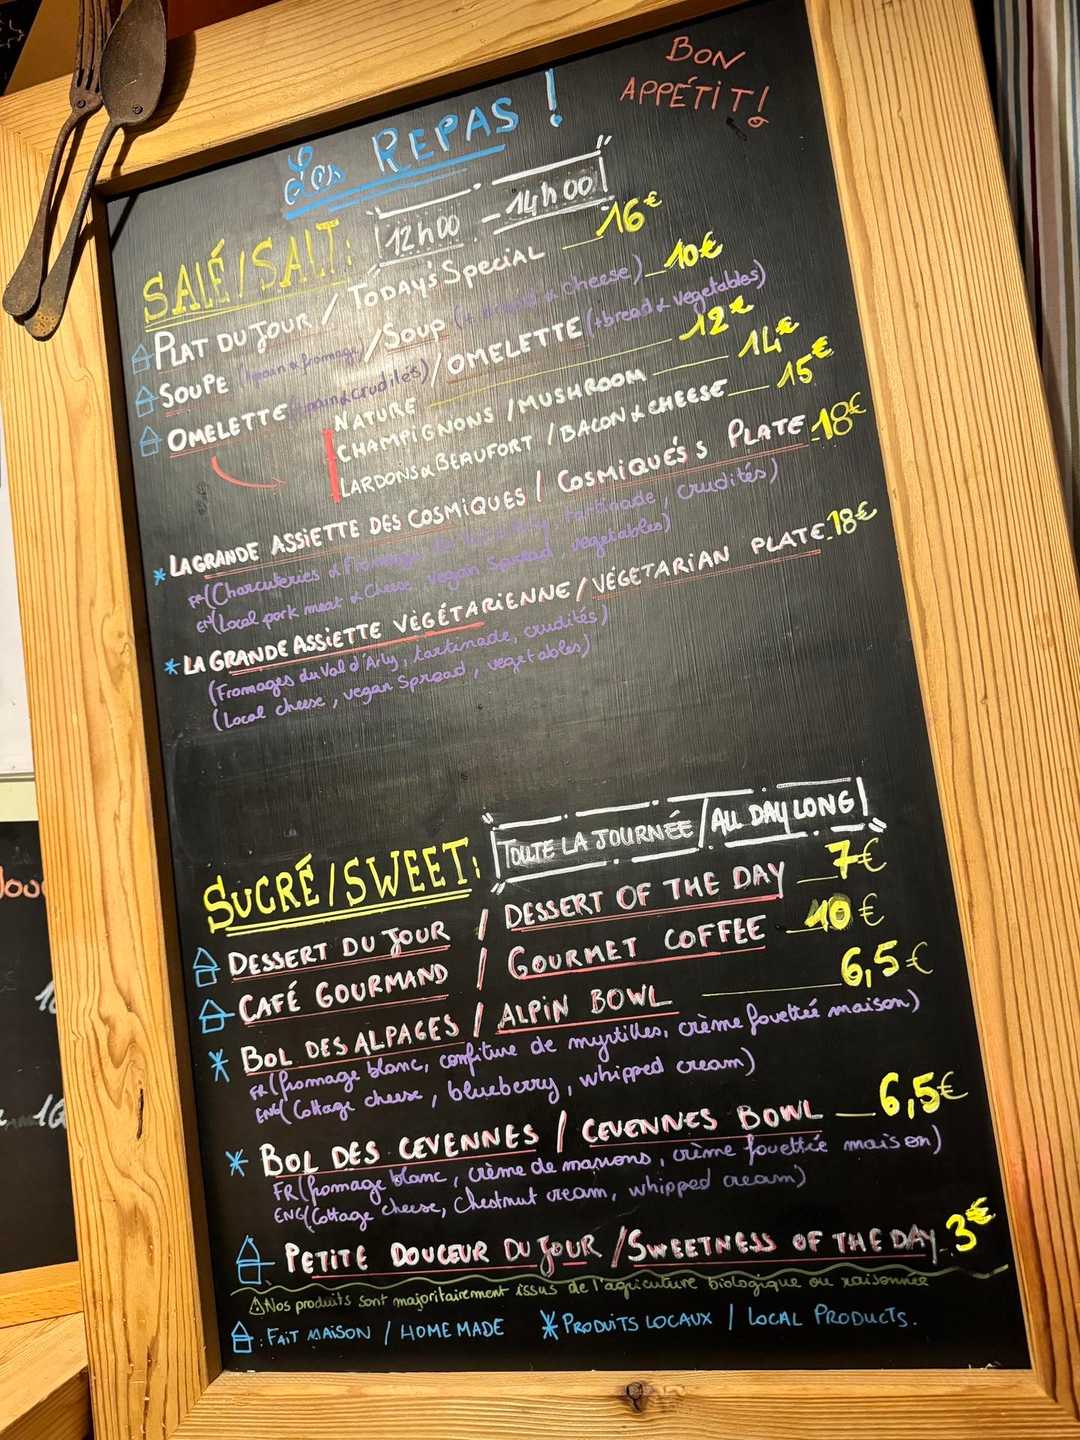 BON
APPÉTIT!
Les REPAS !
SALÉ/SALT: 12h00 - 14h00
PLAT DU JOUR / TODAY'S SPECIAL 16€
SOUPE (+pain & fromage) / SOUP (+ bread & cheese) 10€
OMELETTE (+pain & crudités) / OMELETTE (+bread & vegetables)
NATURE 12€
CHAMPIGNONS / MUSHROOM 14€
LARDONS & BEAUFORT / BACON & CHEESE 15€
* LA GRANDE ASSIETTE DES COSMIQUES / COSMIQUES'S PLATE 18€
FR (Charcuteries & Fromages du Val d'Arly, tartinade, crudités)
EN (Local pork meat & Cheese, vegan Spread, vegetables)
* LA GRANDE ASSIETTE VÈGÉTARIENNE / VÉGETARIAN PLATE 18€
(Fromages du Val d'Arly, tartinade, crudités)
(Local cheese, vegan Spread, vegetables)
SUCRÉ/SWEET: TOUTE LA JOURNÉE / ALL DAY LONG
DESSERT DU JOUR / DESSERT OF THE DAY 7€
CAFÉ GOURMAND / GOURMET COFFEE 10€
* BOL DES ALPAGES / ALPIN BOWL 6,5€
FR (fromage blanc, confiture de myrtilles, crème fouettée maison)
ENG (Cottage cheese, blueberry, whipped cream)
* BOL DES CEVENNES / CEVENNES BOWL 6,5€
FR (fromage blanc, crème de marrons, crème fouettée maison)
ENG (Cottage cheese, Chestnut cream, whipped cream)
PETITE DOUCEUR DU JOUR / SWEETNESS OF THE DAY 3€
⚠ Nos produits sont majoritairement issus de l'agriculture biologique ou raisonnée
: FAIT MAISON / HOME MADE * PRODUITS LOCAUX / LOCAL PRODUCTS.